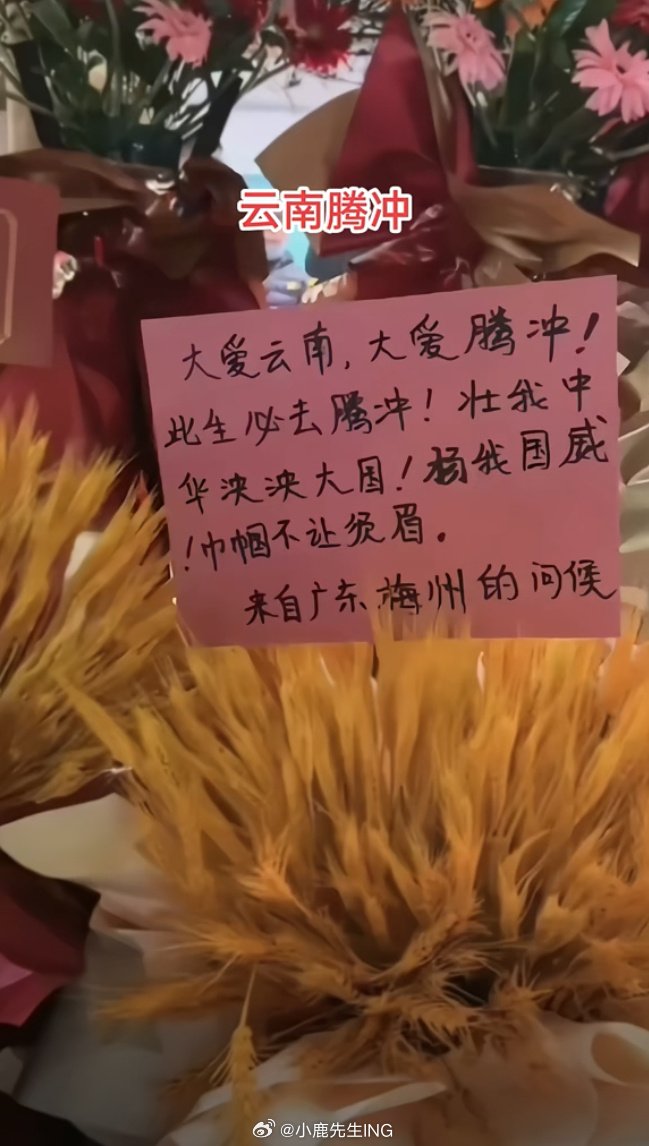 云南腾冲
大爱云南,大爱腾冲!
此生必去腾冲!壮我中
华泱泱大国!扬我国威
!巾帼不让须眉。
来自广东梅州的问候
@小鹿先生ING